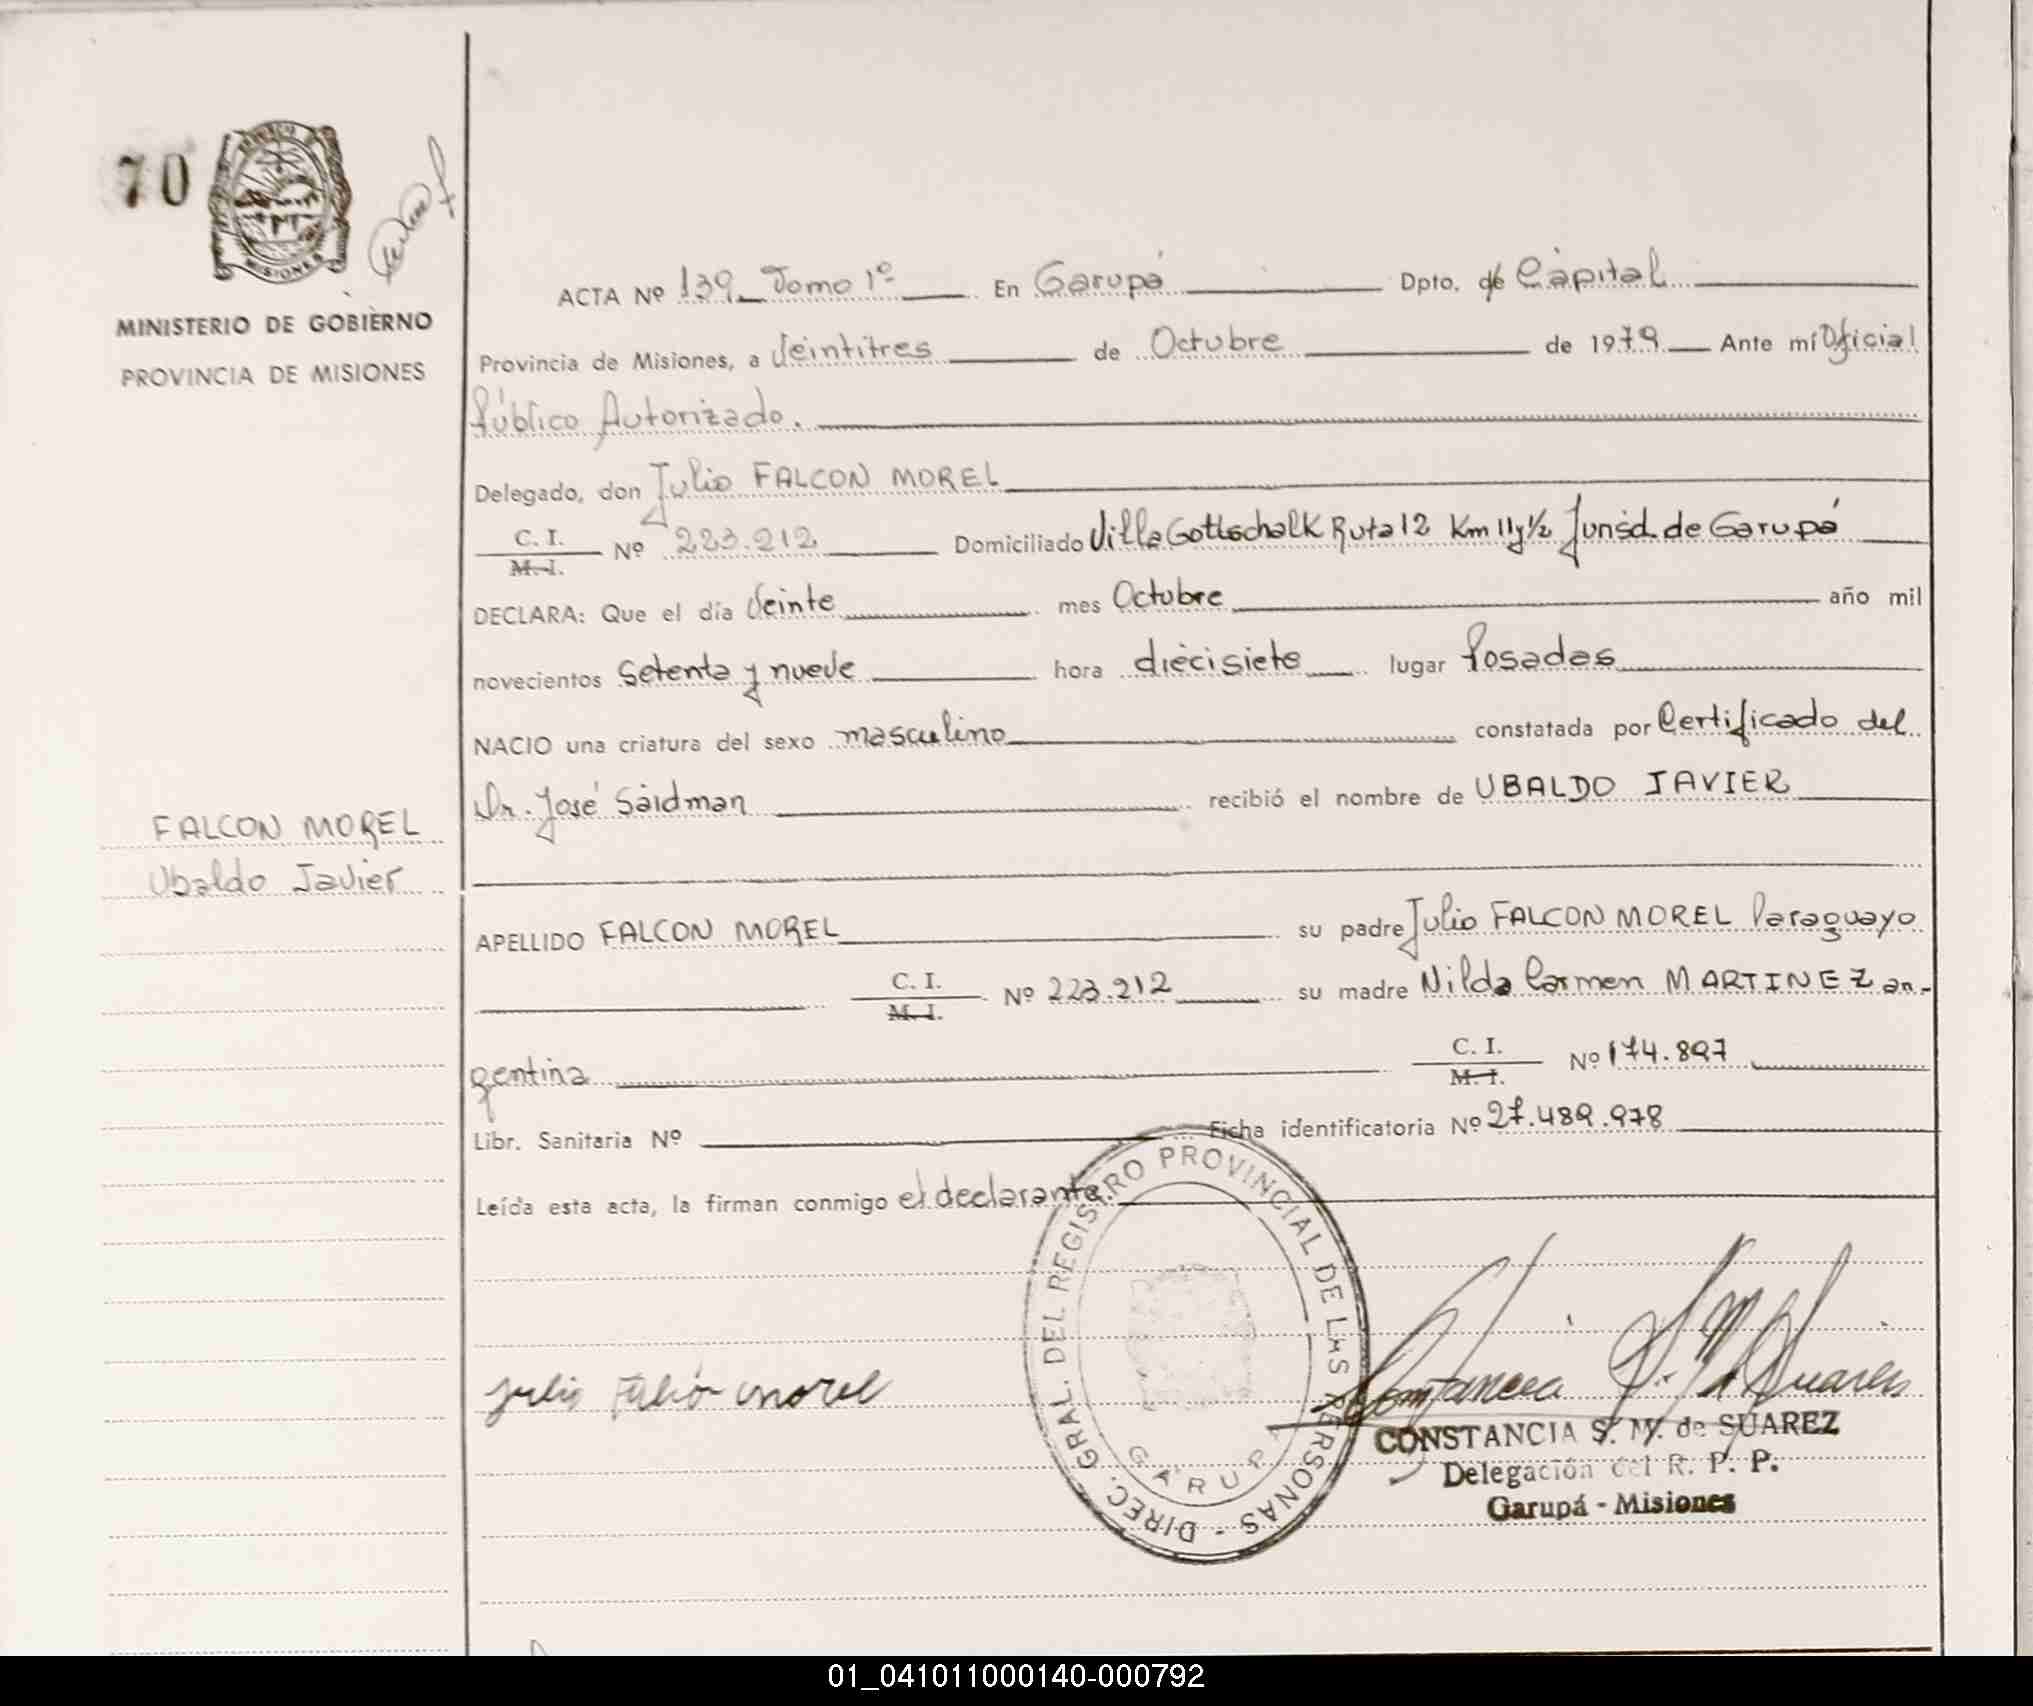 70
MISIONES
MINISTERIO DE GOBIERNO
PROVINCIA DE MISIONES
ACTA Nº 139 Tomo 1º En Garupá Dpto. de Capital
Provincia de Misiones, a Veintitres de Octubre de 1979 Ante mí Oficial
Público Autorizado.
Delegado, don Julio FALCON MOREL
C. I.
M. I. Nº 223.212 Domiciliado Villa Gottschalk Ruta 12 Km 11 y 1/2 Jurisd. de Garupá
DECLARA: Que el día Veinte mes Octubre año mil
novecientos Setenta y nueve hora diecisiete lugar Posadas
NACIO una criatura del sexo masculino constatada por Certificado del
Dr. José Saidman recibió el nombre de UBALDO JAVIER
FALCON MOREL
Ubaldo Javier
APELLIDO FALCON MOREL su padre Julio FALCON MOREL Paraguayo
C. I.
M. I. Nº 223.212 su madre Nilda Carmen MARTINEZ ar-
gentina C. I.
M. I. Nº 174.897
Libr. Sanitaria Nº Ficha identificatoria Nº 27.489.978
Leída esta acta, la firman conmigo el declarante.
DIREC. GRAL. DEL REGISTRO PROVINCIAL DE LAS PERSONAS -
GARUPA
Julio Falcón Morel
Constancia S. M. de Suarez
CONSTANCIA S. M. de SUAREZ
Delegación del R. P. P.
Garupá - Misiones
01_041011000140-000792